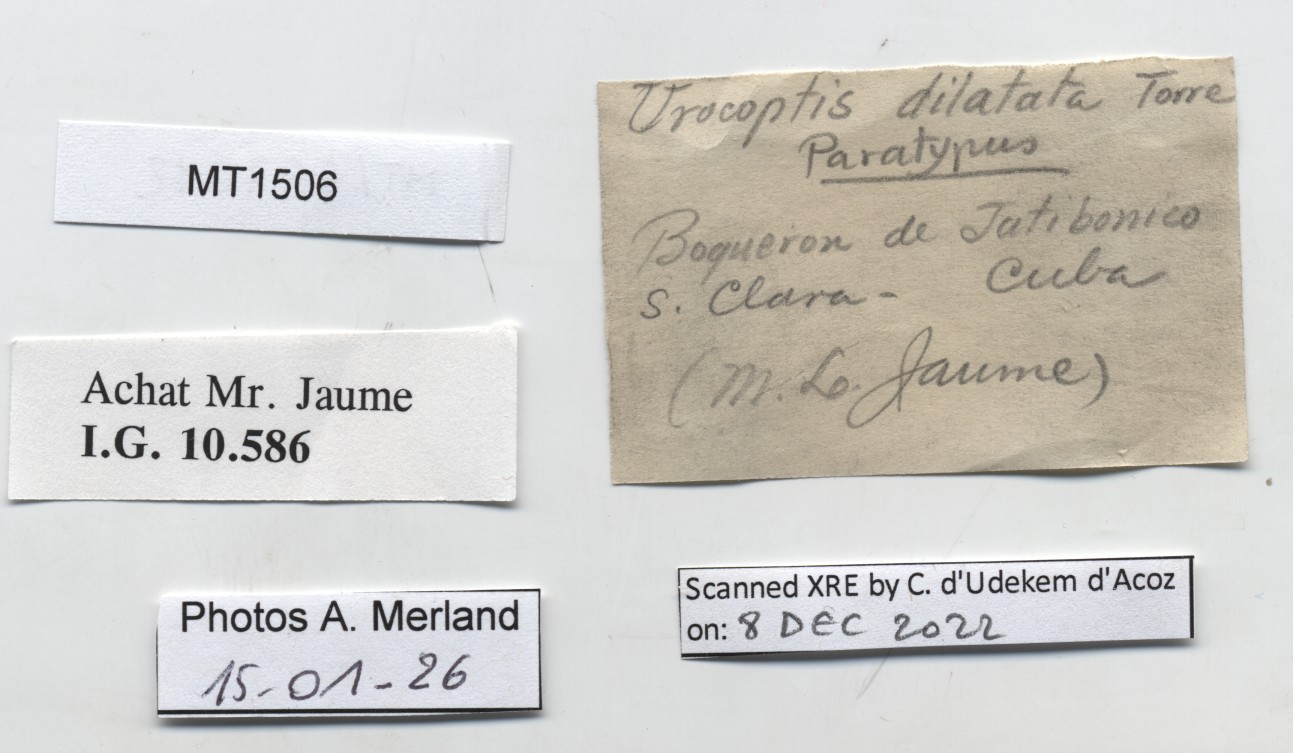 MT1506
Achat Mr. Jaume
I.G. 10.586
Photos A. Merland
15-01-26
Urocoptis dilatata Torre
Paratypus
Boqueron de Jatibonico
S. Clara - Cuba
(M. L. Jaume)
Scanned XRE by C. d'Udekem d'Acoz
on: 8 DEC 2022